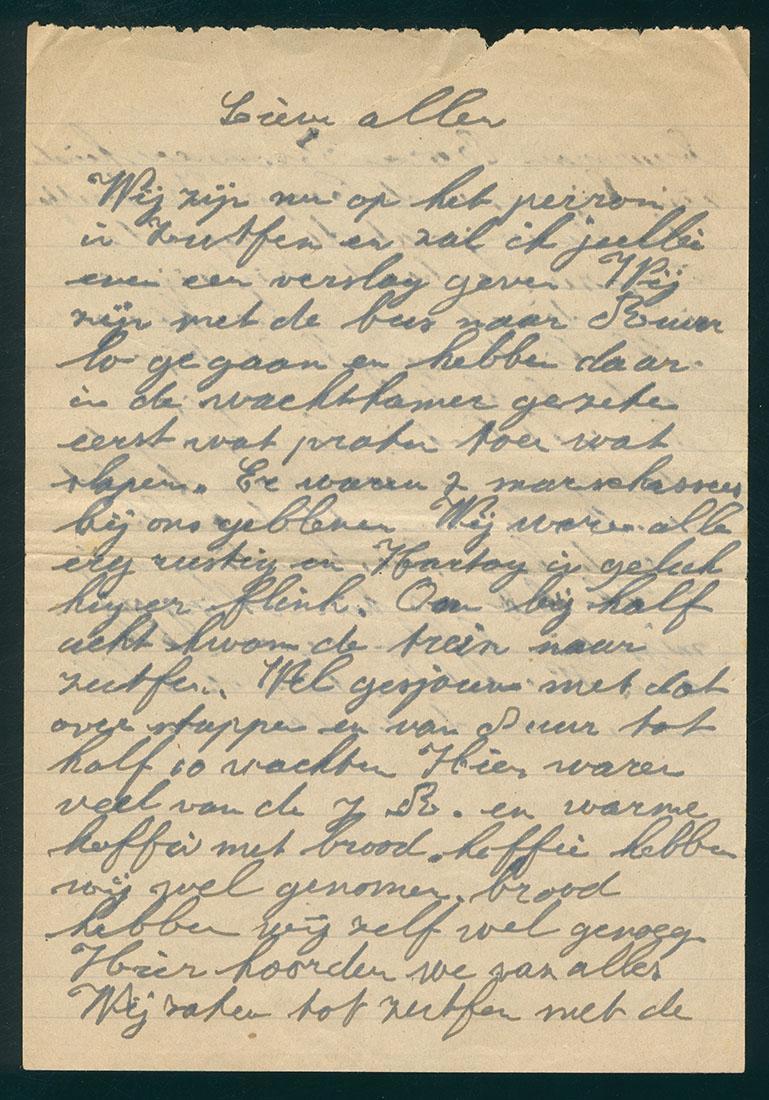 Lieve allen
Wij zijn nu op het perron
in Zutfen en zal ik jullie
even een verslag geven Wij
zijn met de bus naar Ruur
lo gegaan en hebben daar
in de wachtkamer gezeten
eerst wat praten toen wat
slapen. Er waren 2 marechaussees
bij ons gebleven Wij waren alle
erg rustig en Hartog is geluk
kiger flink. Om bij half
acht kwam de trein naar
Zutfen. Wel gesjouw met dat
over stappen en van 8 uur tot
half 10 wachten Hier waren
veel van de J. R. en warme
koffie met brood. koffie hebben
wij wel genomen. brood
hebben wij zelf wel genoeg
Hier hoorden we van alles
Wij zaten tot zutfen met de